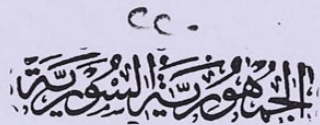 ٢٢٠
الجُمْهُورِيَّة السُّورِيَّة